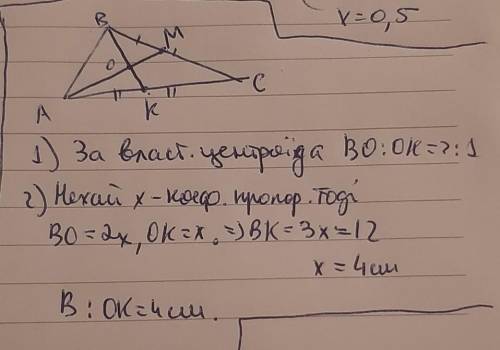 v=0,5
B
M
O
A
K
C
1) За власт. центроїда BO:OK=2:1
2) Нехай x - коеф. пропор. тоді
BO=2x, OK=x. => BK=3x=12
x=4см
B: OK=4см.